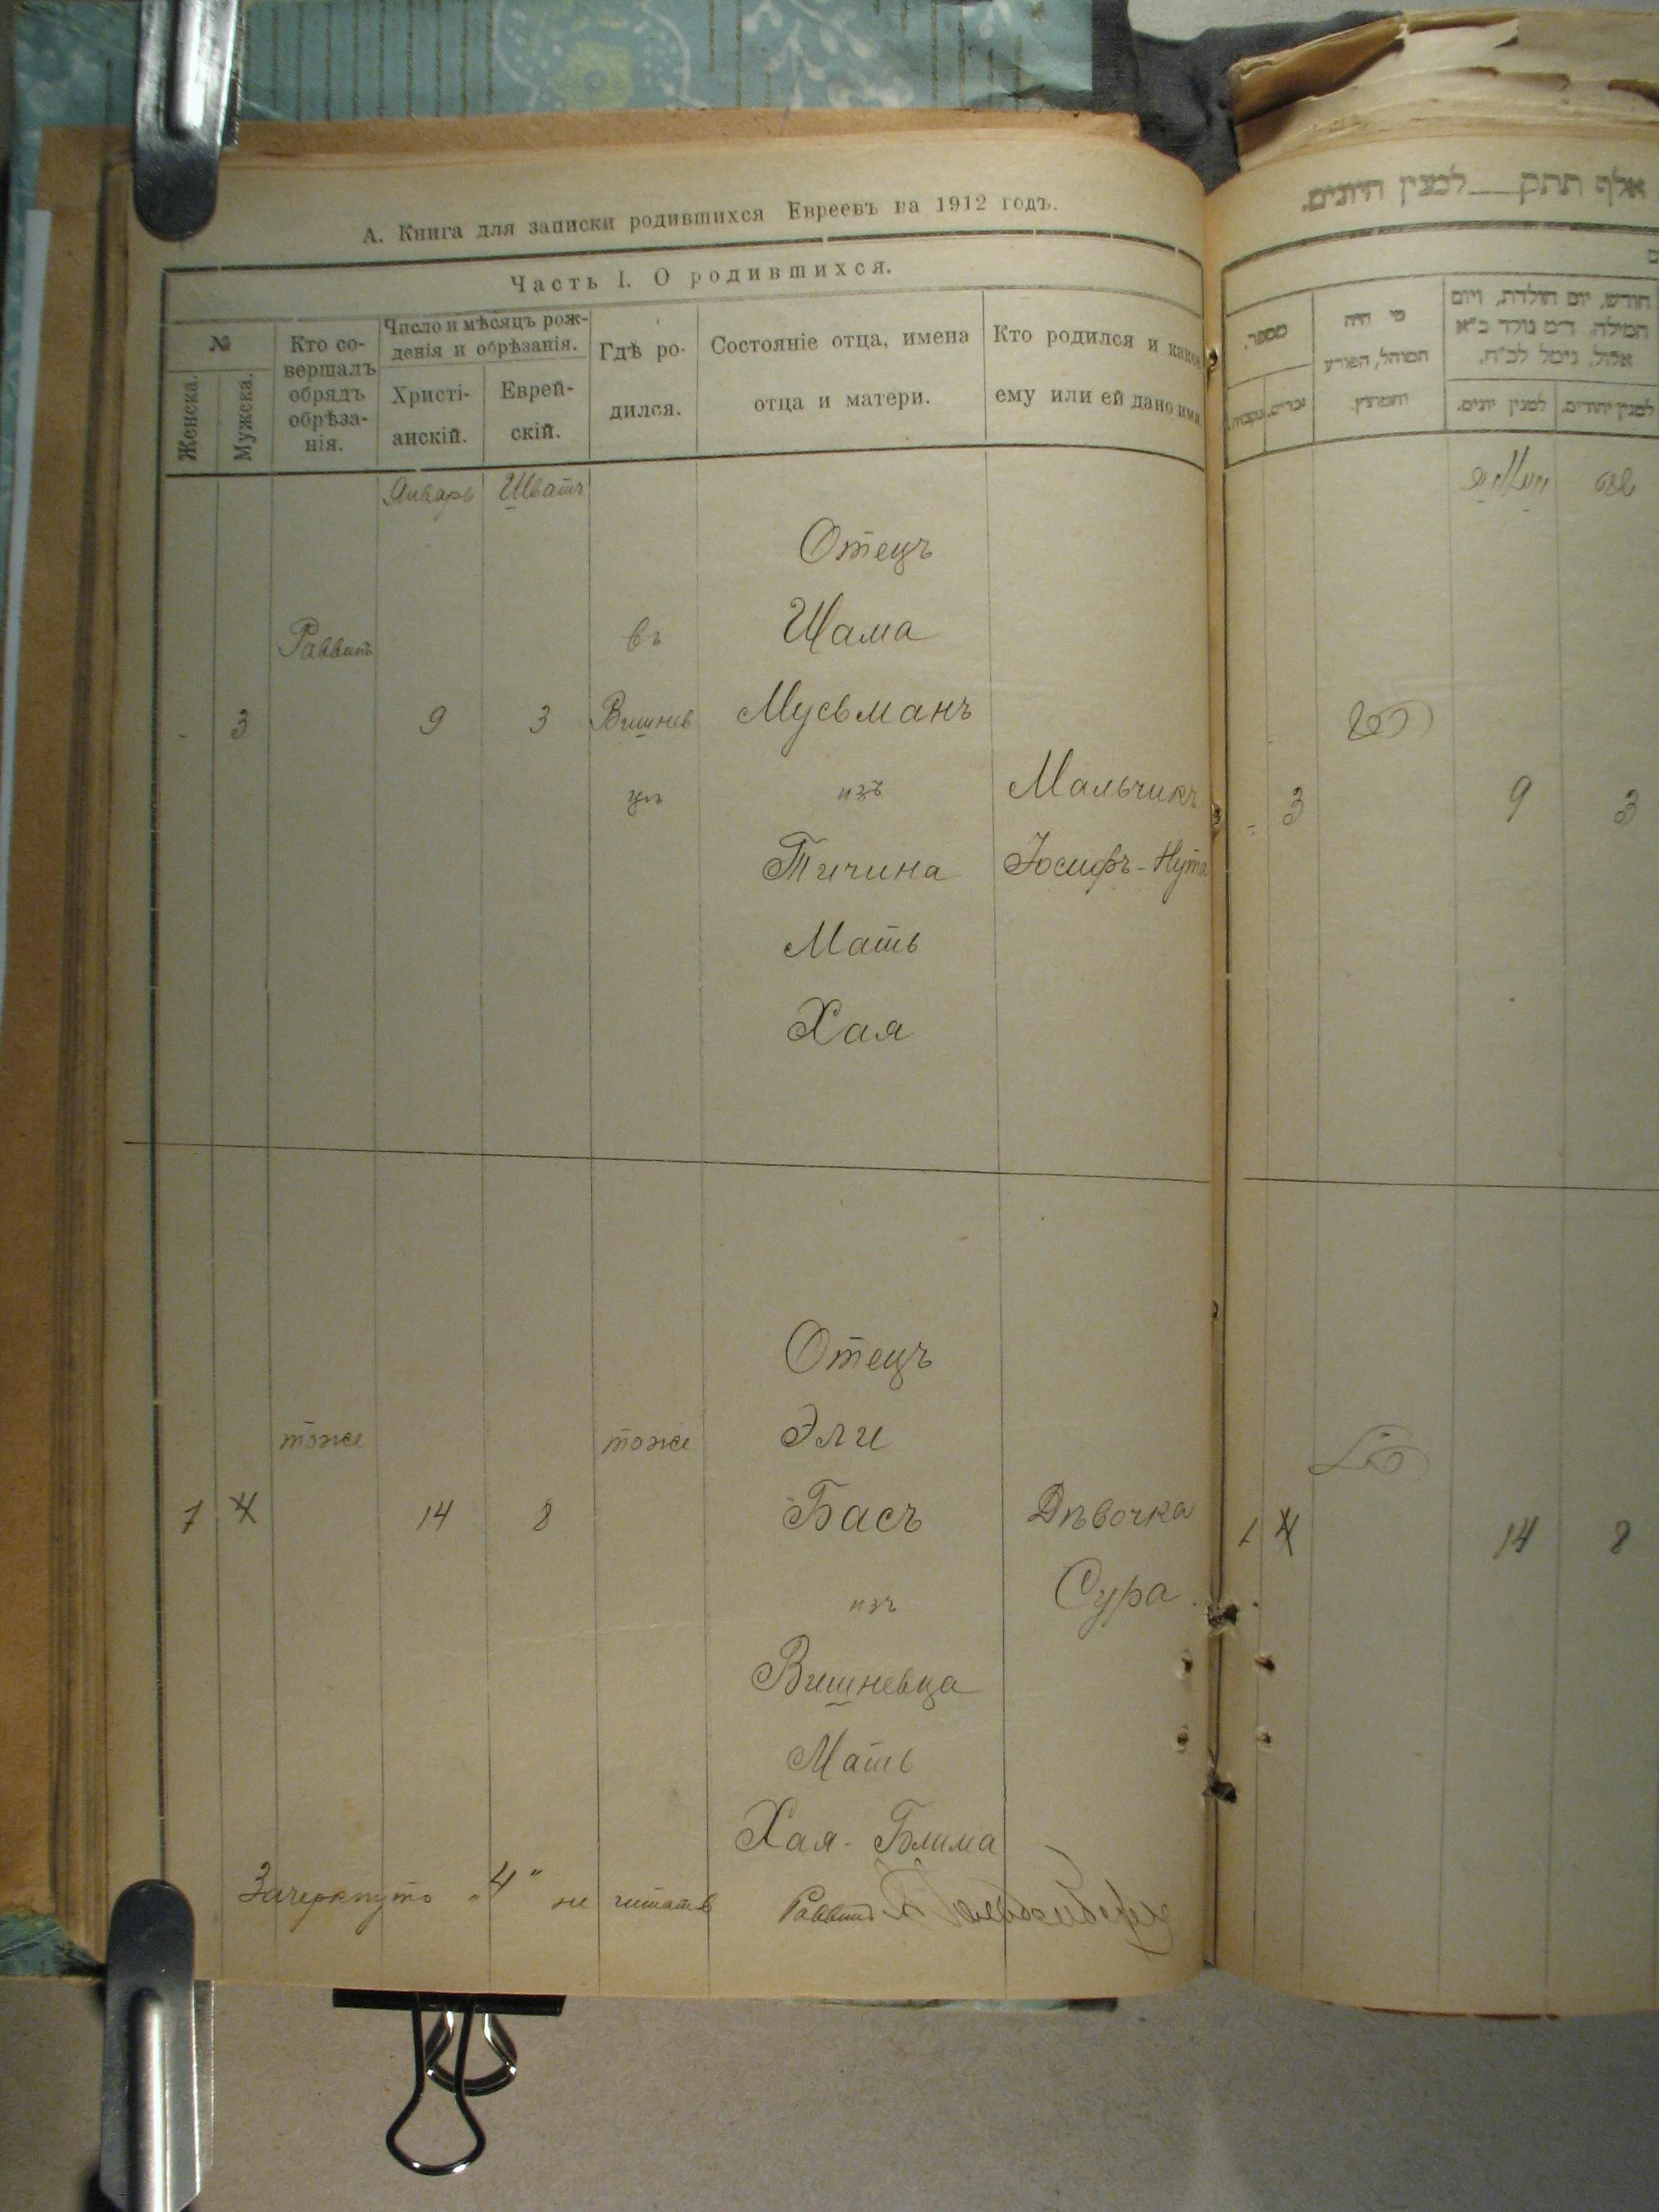 А. Книга для записки родившихся Евреевъ на 1912 годъ.
Часть I. О родившихся.
№
Женска.
Мужска.
Кто со-
вершалъ
обрядъ
обрѣза-
нія.
Число и мѣсяцъ рож-
денія и обрѣзанія.
Христі-
анскій.
Еврей-
скій.
Гдѣ ро-
дился.
Состояніе отца, имена
отца и матери.
Кто родился и какое
ему или ей дано имя.
Январь Шватъ
Отецъ
Шама
Раввинъ въ
3 9 3 Вишнев Мусьманъ
цѣ изъ Мальчикъ
Тичина Іосифъ-Нута
Мать
Хая
Отецъ
тоже тоже Эли
1 4 14 8 Басъ Дѣвочка
изъ Сура
Вишневца
Мать
Хая-Блима
Зачеркнуто „4“ не читать Раввинъ
אלף תתק למנין היונים.
מספר.
זכרים.
נקבות.
מי היה
המוהל, הפורע
והמוצץ.
חודש, יום הולדת, ויום
המילה. ד״מ נולד כ״א
אלול, נימל לכ״ח.
למנין יונים.
למנין יהודים.
3 9 3
1 4 14 8